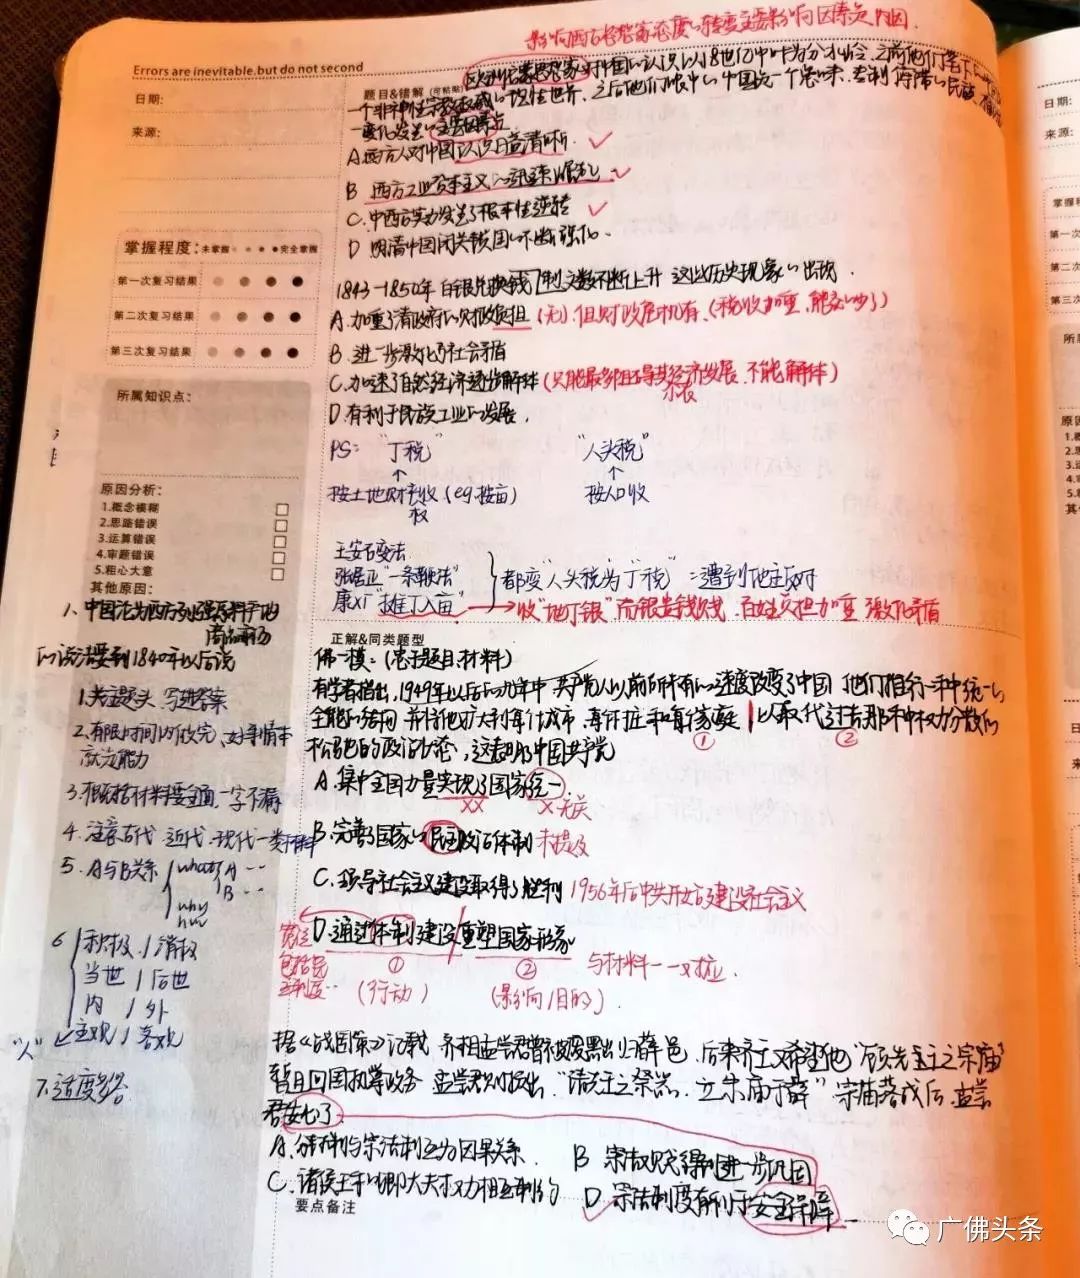 影响西方启蒙家态度的转变主要影响因素是内因.
Errors are inevitable.but do not second
日期:
来源:
题目&错解（可粘贴）
一个非神性宗教权威的理性世界,之后他们眼中的中国是一个
一变化发生的主要因素是
A.西方人对中国认识日益清晰.
B 西方工业资本主义的迅速崛起
C.中西方实力发生了根本性逆转
D 明清中国闭关锁国的不断强化.
掌握程度: 未掌握 完全掌握
第一次复习结果
第二次复习结果
第三次复习结果
1843-1850年 白银兑换钱制文数不断上升 这以历史现象的出现.
A.加重了清政府的财政负担 (无). 但财政危机有、(税收加重,能交的少了)
B.进一步激化了社会矛盾
C.加速了自然经济逐步解体 (只能最多阻碍其经济发展,不能解体)
小农
D.有利于民族工业的发展.
所属知识点:
PS: "丁税" "人头税"
按土地财产收 (eg.按亩) 按人口收
权
原因分析:
1.概念模糊
2.思路错误
3.运算错误
4.审题错误
5.粗心大意
其他原因:
王安石变法
张居正"一条鞭法" 都变"人头税"为"丁税" ∴遭到地主反对
康XT"摊丁入亩" → 收"地丁银" 而银贵钱贱 百姓负担加重 激化矛盾
1、中国沦为西方列强原料产地
商品市场
的说法要到1840年以后说
1.关注题头 写进答案
2.有限时间内做完、
3.概括材料要全面,一字不漏
4.注意古代 近代、现代一类材料
5.A与B关系 what A ··
B ··
why
how
6 积极 / 消极
当世 / 后世
内 / 外
"人" 主观 / 客观
7.适度
正解&同类题型
佛一模:(忠于题目,材料)
有学者指出,1949年以后的九年中 共产党人以前所未有的速度改变了中国 他们推行一种统一的
全能的结网 并将他扩大到每个城市,每个村庄和每个家庭 以取代过去那种权力分散的
① ②
松弛的政治,这表明中国共产党
A.集中全国力量实现了国家统一.
XX X无关
B.完善了国家的民主政治体制 未提及
C.领导社会主义建设取得了胜利 1956年后中共开始建设社会主义
D.通过体制建设重塑国家形象
① ② 与材料一一对应.
(行动) (影响/目的).
据《战国策》记载 齐相孟尝君曾被废黜出归薛邑,后来齐王又希望他"顾先王之宗庙"
暂且回国执掌政务 孟尝君则提出,"请先王之祭器,立宗庙于薛" 宗庙落成后,孟尝
君安心了
A.分封制与宗法制互为因果关系. B 宗法制得到进一步巩固
C.诸侯王和卿大夫权力相互制约 D.宗法制度有利于安全保障
要点备注
广佛头条